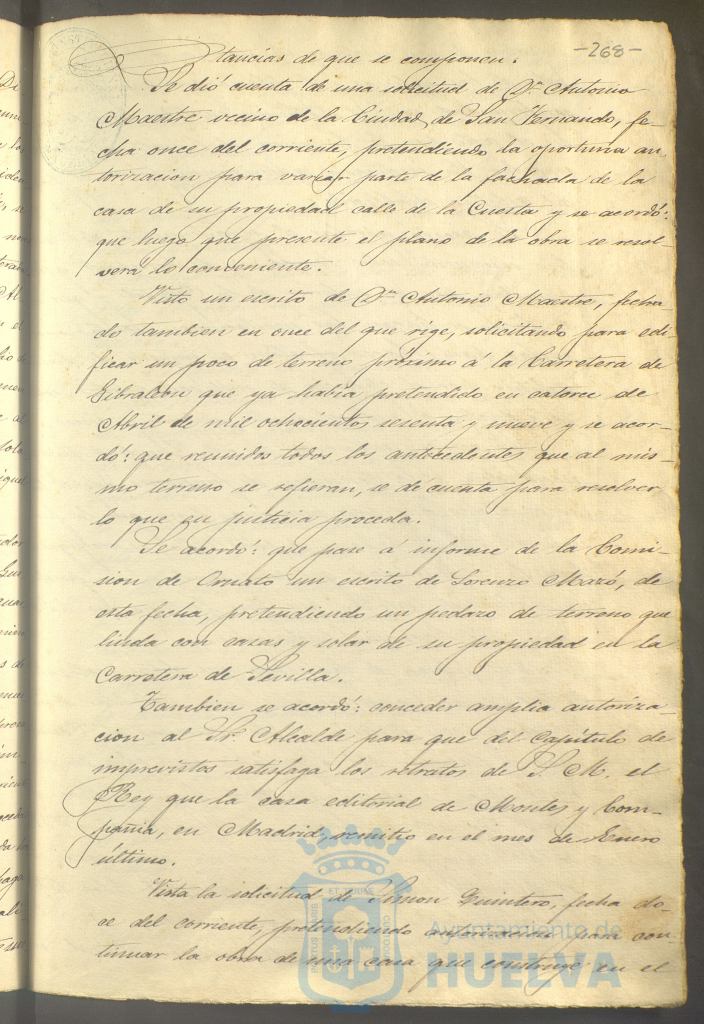 -268-
tancias de que se componen.
Se dió cuenta de una solicitud de Dn Antonio
Maestre vecino de la Ciudad de San Fernando, fe-
cha once del corriente, pretendiendo la oportuna au-
torizacion para variar parte de la fachada de la
casa de su propiedad calle de la Cuesta y se acordó:
que luego que presente el plano de la obra se resol-
verá lo conveniente.
Visto un escrito de Dn Antonio Maestre, fecha-
do tambien en once del que rige, solicitando para edi-
ficar un poco de terreno próximo á la Carretera de
Gibraleon que ya habia pretendido en catorce de
Abril de mil ochocientos sesenta y nueve y se acor-
dó: que reunidos todos los antecedentes que al mis-
mo terreno se refieran, se dé cuenta para resolver
lo que en justicia proceda.
Se acordó: que pase á informe de la Comi-
sion de Ornato un escrito de Lorenzo Mazó, de
esta fecha, pretendiendo un pedazo de terreno que
linda con casas y solar de su propiedad en la
Carretera de Sevilla.
Tambien se acordó: conceder amplia autoriza-
cion al Sr. Alcalde para que del Capítulo de
imprevistos satisfaga los retratos de S. M. el
Rey que la casa editorial de Montes y Com-
pañia, en Madrid, remitió en el mes de Enero
último.
Vista la solicitud de Simon Quintero, fecha do-
ce del corriente, pretendiendo autorizacion para con-
tinuar la obra de una casa que construye en el
Ayuntamiento de
HUELVA